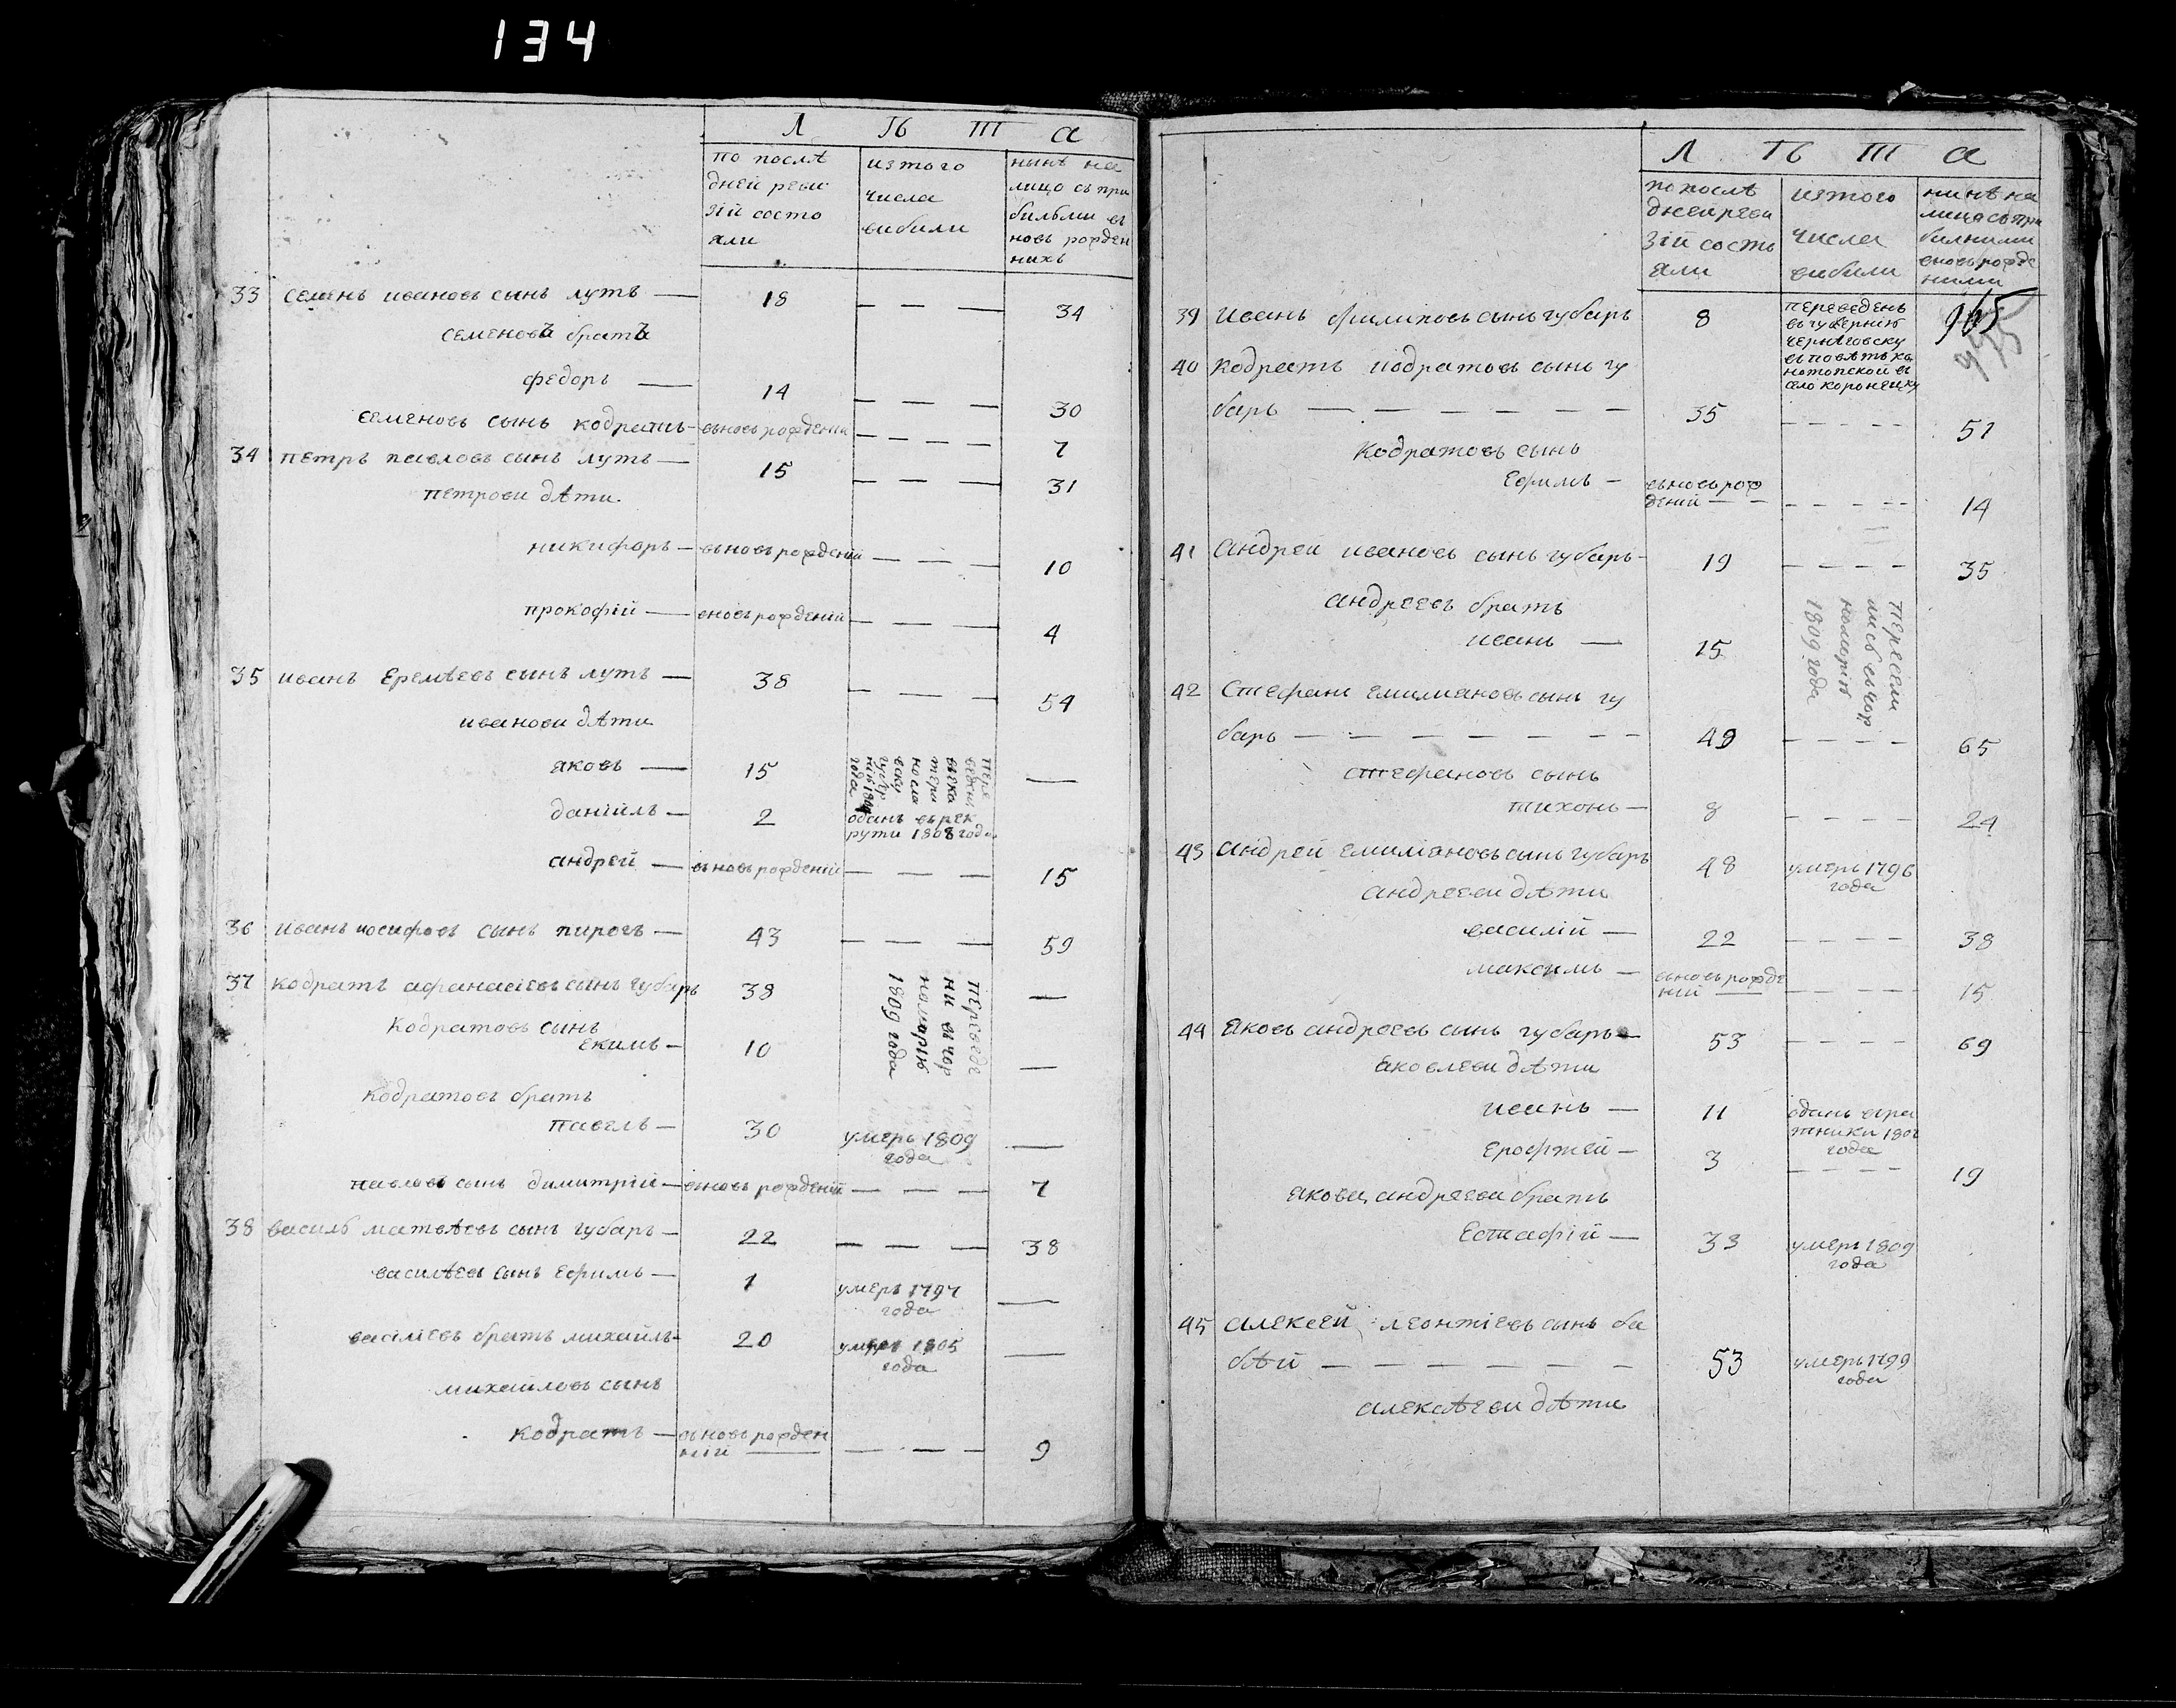 134
Л ѣ т а
по послѣ
дней реви
зiй состо
яли
изтого
числа
вибили
нинѣ на
лицо съ при
бильми въ
новь рожден
нихъ
33 семенъ ивановъ сынъ лутъ — 18 — — — 34
семеновъ братъ
федоръ — 14 — — — 30
семеновъ сынъ кодратъ - вьновь рожденiй — — — — 7
34 петръ павловъ сынъ лутъ — 15 — — — 31
петрови дѣти
никифоръ — вьновь рожденiй — — — 10
прокофiй — вновь рожденiй — — — 4
35 иванъ еремѣевъ сынъ лутъ — 38 — — — 54
иванови дѣти
яковъ — 15 —
данiилъ — 2 одань въ рек
рути 1808 года
андрей — вьновь рожденiй — — — 15
36 иванъ иосифовъ сынъ пирогъ — 43 — — — 59
37 кодратъ афанасiевъ сынъ губарь 38 —
переведе
ни въ чор
номорiю
1809 года
кодратовъ сынъ
екимъ — 10 —
кодратовъ братъ
павелъ — 30 умеръ 1809 —
года
павловъ сынъ димитрiй — вьновь рожденiй — — — 7
38 василь матвѣевъ сынъ губарь — 22 — — — 38
василѣевъ сынъ ефимъ — 1 умеръ 1797 —
года
василiевъ братъ михайлъ - 20 умеръ 1805 —
года
михайловъ сынъ
кодратъ — вьновь рожден
нiй — — — — 9
Л ѣ т а
по послѣ
дней реви
зiй сость
яли
изтого
числа
вибили
нинѣ на
лицо съ при
билними
вновь рожде
ними
39 иванъ филиповъ сынъ губарь 8 переведенъ
въ губернiю
чернѣговску
въ повѣтъ ко
нотопской въ
село
965
40 кодратъ кодратовъ сынъ гу
барь — — — — — — 35 — — — — 51
кодратовъ сынъ
ефимъ — вьновь рож
денiй — — — — — 14
41 андрей ивановъ сынъ губарь — 19 — — — — 35
андреевъ братъ
иванъ — 15
пересели
лись въ чор
номорiю
1809 года
42 стефанъ емилиановъ сынъ гу
барь — — — — — — — 49 — — — — 65
стефановъ сынъ
тихонъ — 8 — — — — 24
43 андрей емилiановъ сынъ губарь 48 умеръ 1796
года
андрееви дѣти
василiй — 22 — — — — 38
максимъ — вьновь рожде
нiй — — — — — 15
44 яковъ андреевъ сынъ губарь — 53 — — — — 69
яковлеви дѣти
иванъ — 11 одань въ ра
тники 180
года
ерофтей — 3 — — — — 19
якова андрееви братъ
естафiй — 33 умеръ 1809
года
45 алексей леонтiевъ сынъ ба
бѣй — — — — — — 53 умеръ 1799
года
алексѣеви дѣти